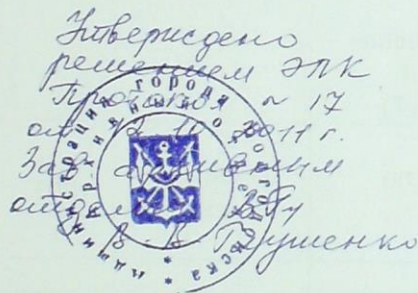 Утверждено
решением ЭПК
Протокол № 17
от 2011 г.
Зав. архивным
отделом
В. В. Грушенко
администрация города Волгодонска